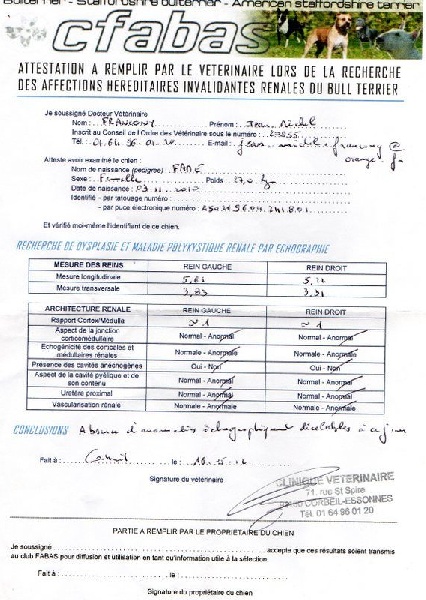 Bullterrier - Staffordshire bullterrier - American staffordshire terrier
cfabas
ATTESTATION A REMPLIR PAR LE VETERINAIRE LORS DE LA RECHERCHE
DES AFFECTIONS HEREDITAIRES INVALIDANTES RENALES DU BULL TERRIER
Je soussigné Docteur Vétérinaire
Nom : FRANCONY Prénom : Jean Michel
Inscrit au Conseil de l'Ordre des Vétérinaire sous le numéro :
Tél. 01.64.96.01.20 E-mail : jean michel francony @
orange fr
Atteste avoir examiné le chien :
Nom de naissance (pedigree)
Sexe : Femelle Poids
Date de naissance : 03 11 2010
Identifié - par tatouage numéro :
- par puce électronique numéro :
Et vérifié moi-même l'identifiant de ce chien.
RECHERCHE DE DYSPLASIE ET MALADIE POLYKYSTIQUE RENALE PAR ECHOGRAPHIE
MESURE DES REINS REIN GAUCHE REIN DROIT
Mesure longitudinale
Mesure transversale
ARCHITECTURE RENALE REIN GAUCHE REIN DROIT
Rapport Cortex/Médulla ~ 1 ~ 1
Aspect de la jonction
corticomédullaire Normal - Anormal Normal - Anormal
Echogénicité des corticales et
médullaires rénales Normale - Anormale Normale - Anormale
Présence des cavités anéchogènes Oui - Non Oui - Non
Aspect de la cavité pyélique et de
son contenu Normal - Anormal Normal - Anormal
Uretère proximal Normal - Anormal Normal - Anormal
Vascularisation rénale Normale - Anormale Normale - Anormale
CONCLUSIONS Absence d'anomalies échographiques décelables à ce jour
Fait à : Corbeil le :
Signature du vétérinaire
CLINIQUE VETERINAIRE
71, rue St Spire
CORBEIL-ESSONNES
Tél. 01 64 96 01 20
PARTIE A REMPLIR PAR LE PROPRIETAIRE DU CHIEN
Je soussigné accepte que ces résultats soient transmis
au club FABAS pour diffusion et utilisation en tant qu'information utile à la sélection.
Fait à : le :
Signature du propriétaire du chien